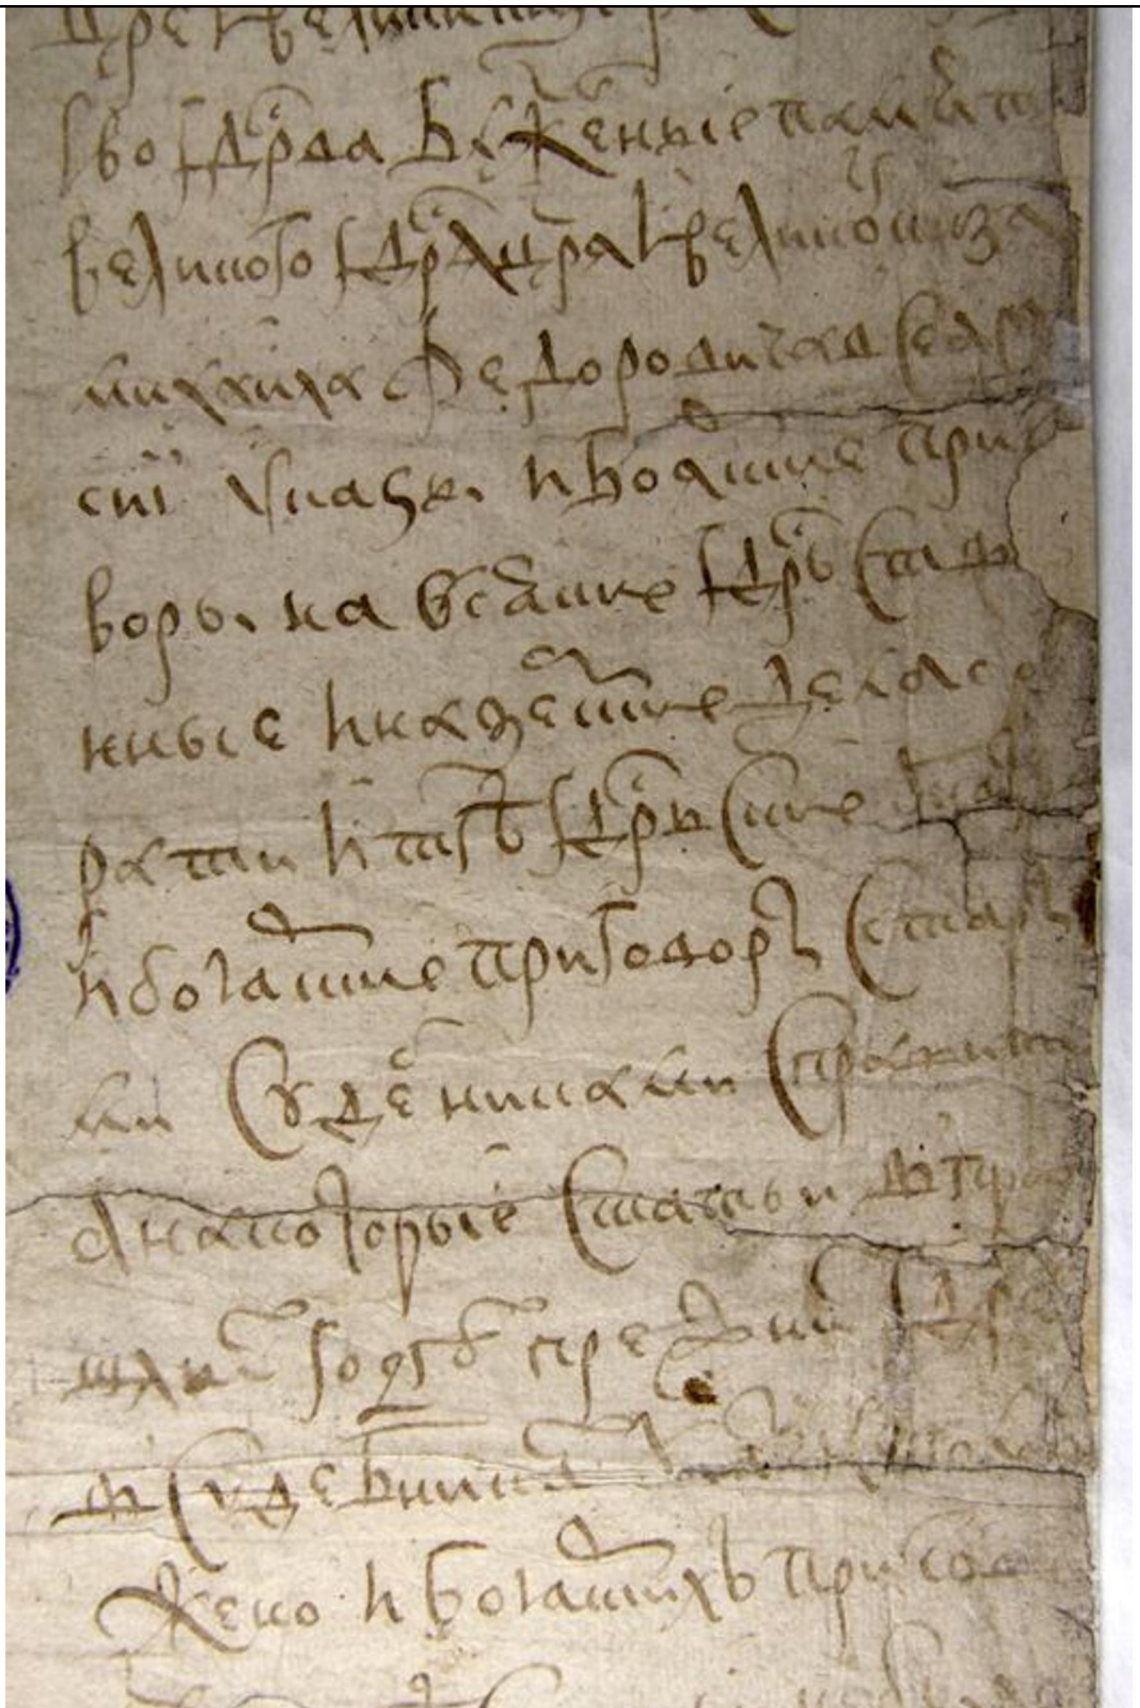 црѧ и великих
его гдрва блженныіе памѧти
великого гдрѧ црѧ и великого кнзѧ
михаила Федоровича всеа
сиі указы. и боѧрские приго
воры. на всѧкие гдрьств
нные и на земские дела со
рати и те гдрьские ука
и боѧрские приговоры с стары
ми судебниками справити
а на которые статьи в про
шлых годех прежних гдре
в судебниках
жено и боѧрских пригов